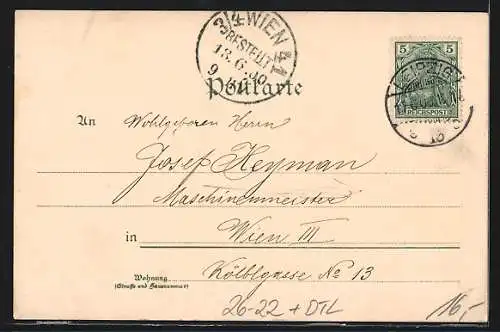 3/4 WIEN 41
BESTELLT
13.6.00
9
Postkarte
5 5
REICHSPOST
LEIPZIG
An Wohlgeboren Herrn
Josef Heyman
Maschinenmeister
in Wien III
Wohnung
(Straße und Hausnummer)
Kölblgasse No 13
26-22 + DTL
16,-